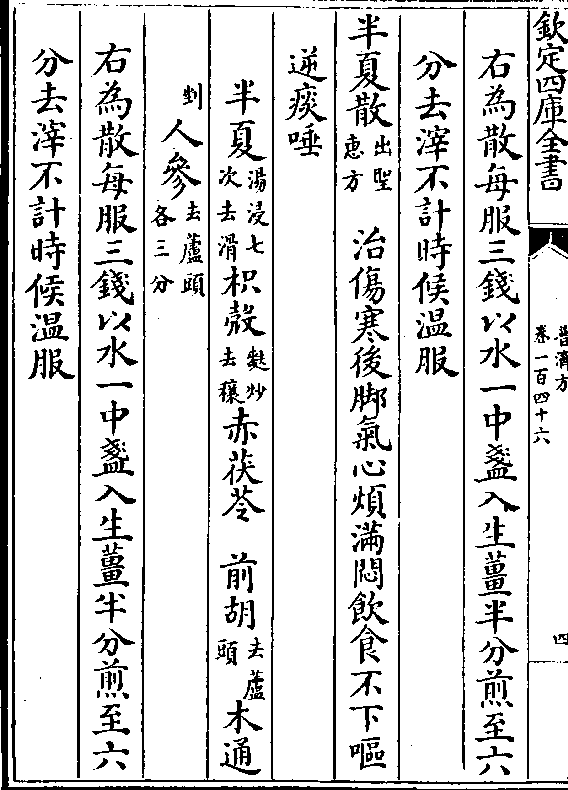 欽定四庫全書
普濟方
卷一百四十六
四
右為散每服三錢以水一中盞入生薑半分煎至六
分去滓不計時候温服
半夏散出聖惠方 治傷寒後脚氣心煩滿悶飲食不下嘔
逆痰唾
半夏湯浸七次去滑枳殼麩炒去穰赤茯苓 前胡去蘆頭木通
剉人參去蘆頭各三分
右為散每服三錢以水一中盞入生薑半分煎至六
分去滓不計時候温服